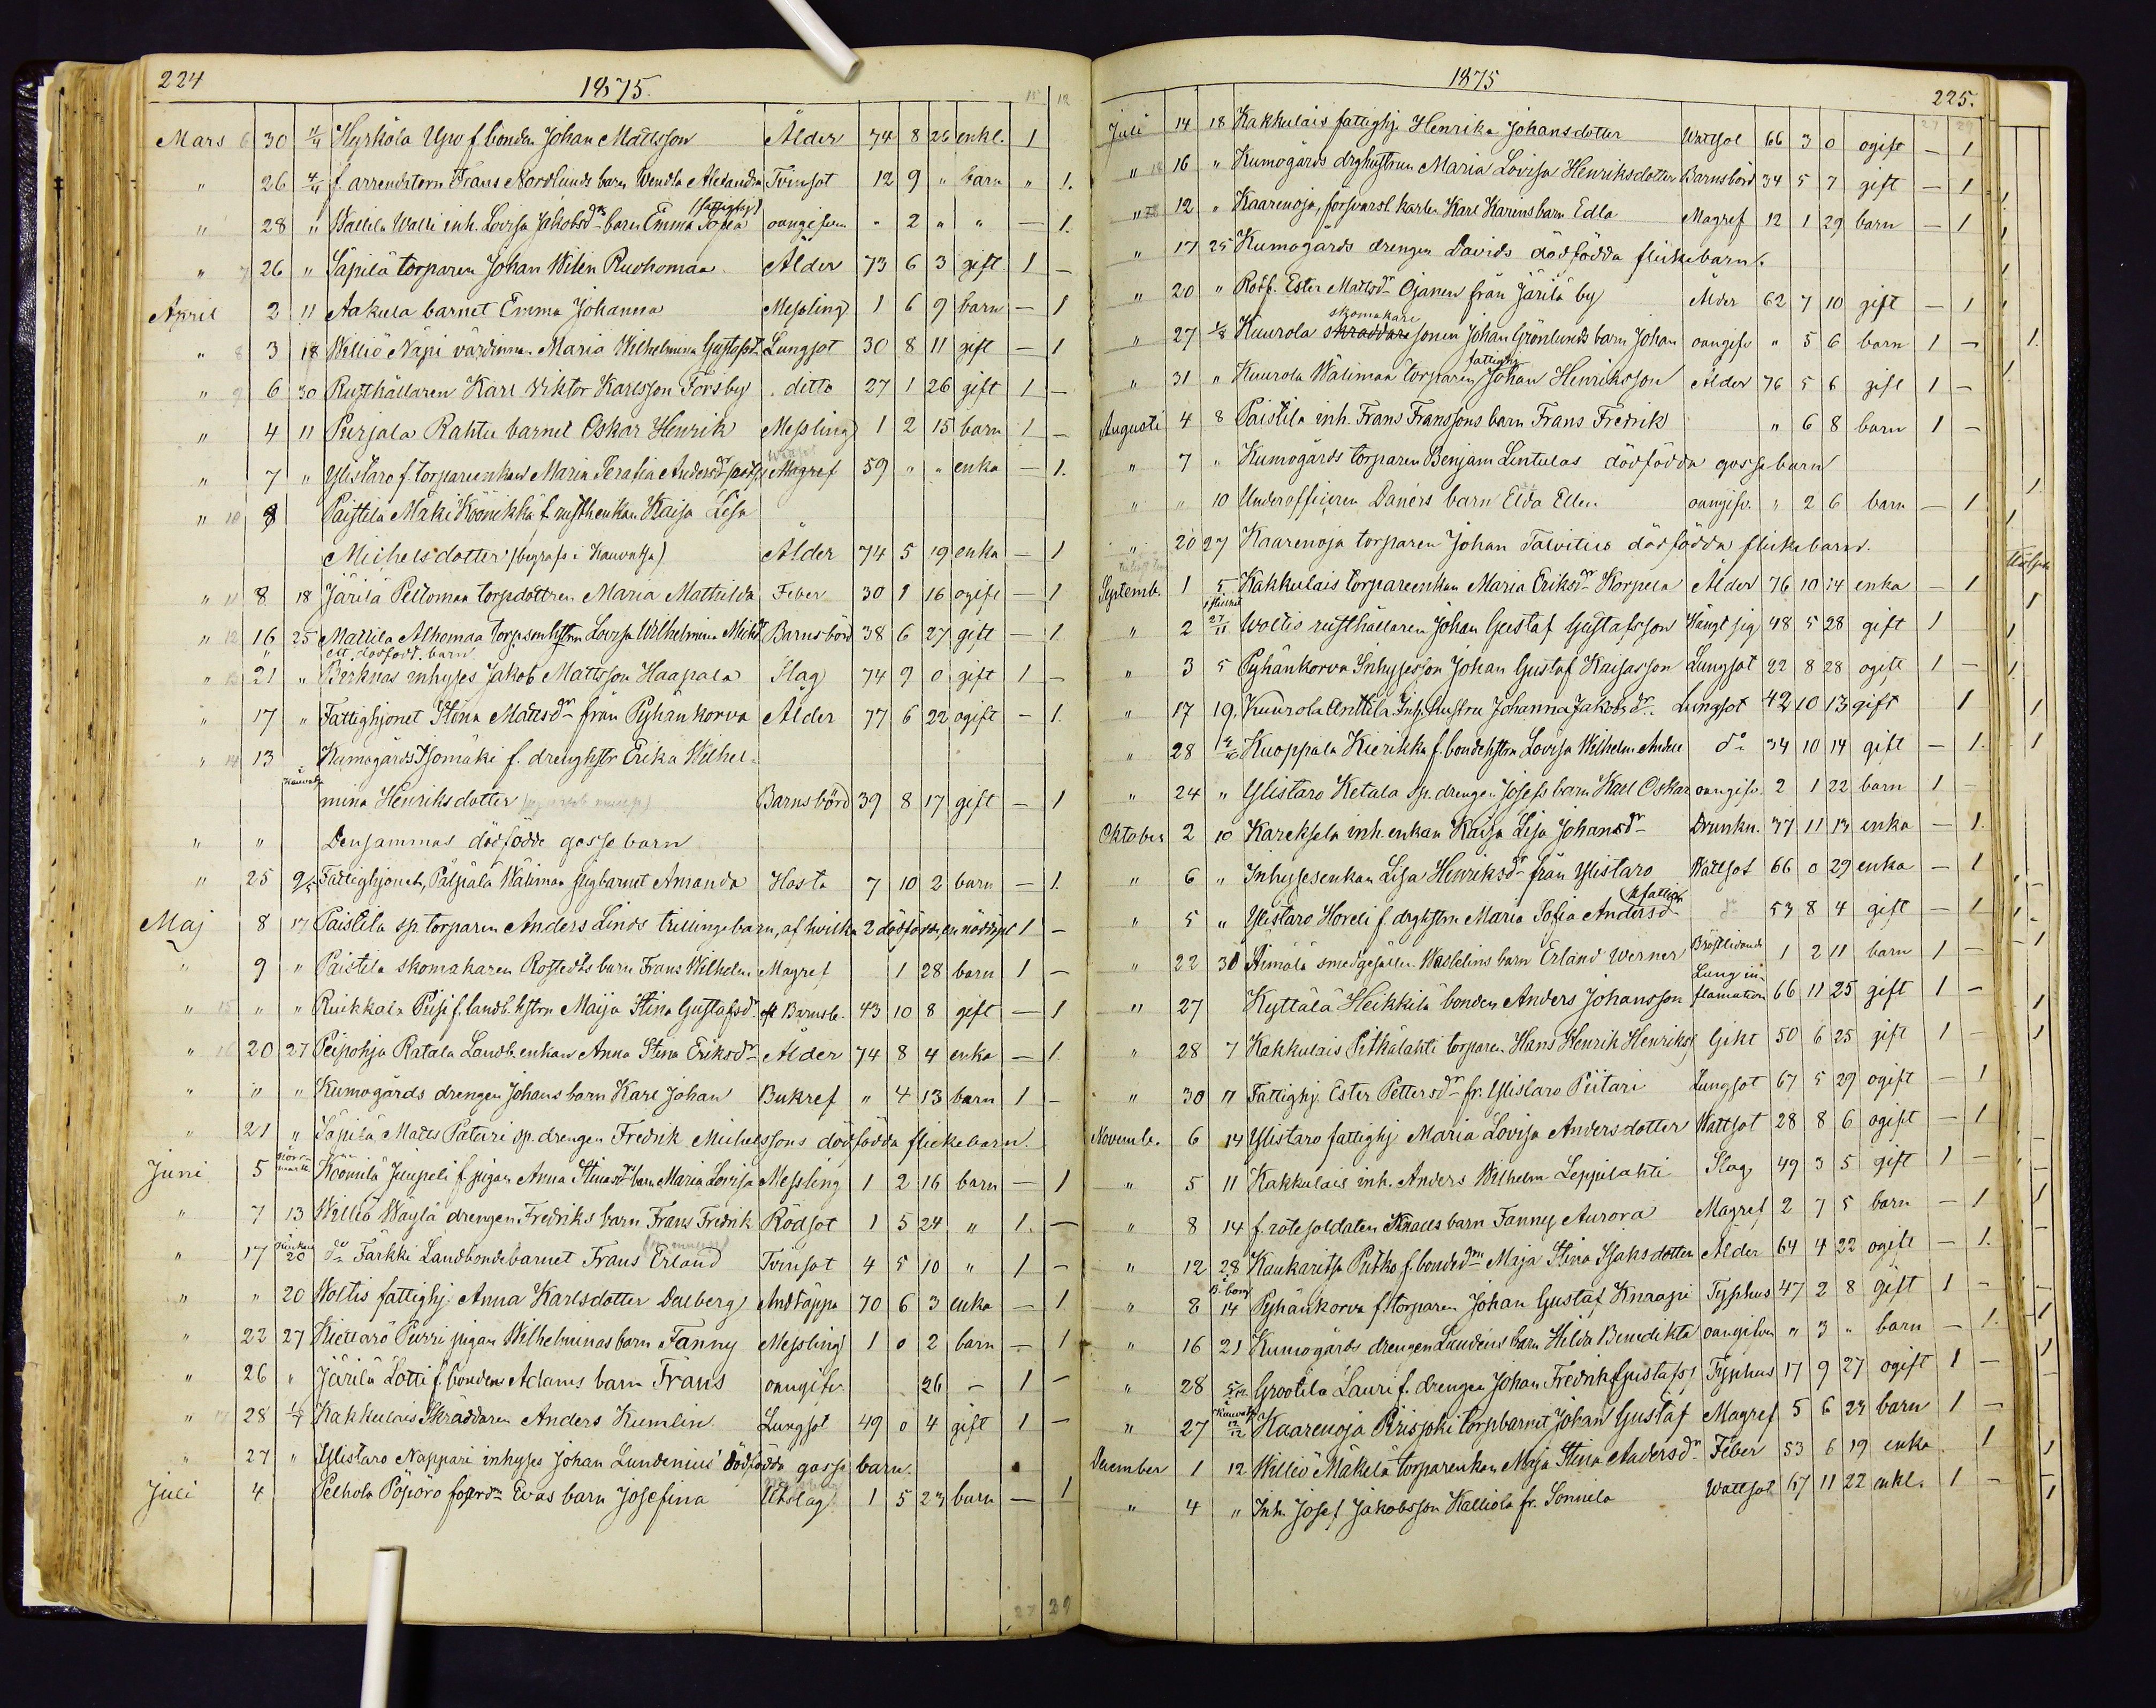 224
1875.
15 12
Mars 6 30 4/4 Hyrköla Upo f. bonden Johan Mattsson Ålder 74 8 26 enkl. 1
" 26 4/4 f. arrendatorn Frans Nordlunds barn Wendla Alexandra Tvinsot 12 9 " barn " 1.
(fattighj)
" 28 " Wallila Walli inh. Lovisa Jakobsdrs barn Emma Sofia oangifven - 2 " " — 1.
" 7 26 " Säpilä torparen Johan Witen Ruohomaa Ålder 73 6 3 gift 1 —
April 2 11 Aakula barnet Emma Johanna Messling 1 6 9 barn — 1
" 8 3 18 Williö Näpi värdinnan Maria Wilhelmina Gustafsdr Lungsot 30 8 11 gift — 1
" 9 6 30 Rusthållaren Karl Viktor Karlsson Forsby ditto 27 1 26 gift 1 —
" 4 11 Purjala Rahtu barnet Oskar Henrik Messling 1 2 15 barn 1 —
" 7 " Ylistaro f. torpareenkan Maria Serafia Andersdr Magref 59 " " enka — 1.
" 10 8 Paistila Mäki Köönikkä f. rusthenkan Kaisa Lisa
Michelsdotter (begrafs i Kauvatsa) Ålder 74 5 19 enka — 1
" 11 8 18 Järilä Peltomaa torpdottren Maria Mathilda Feber 30 1 16 ogift — 1
" 12 16 25 Mattila Alhomaa torpsonhstrun Lovisa Wilhelmina Michsdr Barnsbörd 38 6 27 gift — 1
" ett dödfödt barn
" 13 21 " Berknäs inhyses Jakob Mattsson Haapala Slag 74 9 0 gift 1 —
" 17 " Fattighjonet Stina Mattsdr från Pyhänkorva Ålder 77 6 22 ogift — 1.
" 14 13 Kumogårds Isomäki f. drenghstr Erika Wilhel-
Kauvatsa
mina Henriksdotter Barnsbörd 39 8 17 gift — 1
" " Densammas dödfödde gosse barn
" 25 2/5 Fattighjonet, Pälpälä Wälimaa pigbarnet Amanda Hosta 7 10 2 barn — 1.
Maj 8 17 Paistila sp. torparen Anders Linds trillingebarn, af hvilka 2 dödfödda, en nöddöpt 1 —
" 9 " Paistila skomakaren Rostedts barn Frans Wilhelm Magref 1 28 barn 1 —
" 15 " " Ruikkala Pispi f. landb. hstrn Maija Stina Gustafsdr eft Barnsb. 43 10 8 gift — 1
" 16 20 27 Peipohja Ratala Landb. enkan Anna Stina Eriksdr Ålder 74 8 4 enka — 1.
" " " Kumogårds drengen Johans barn Karl Johan Bukref " 4 13 barn 1 —
" 21 " Säpilä Matts Paturi sp. drengen Fredrik Michelssons dödfödda flickebarn.
Norrmark
Juni 5 Koomila Juupeli f. pigan Anna Stinas barn Maria Lovisa Messling 1 2 16 barn — 1
" 7 13 Williö Wäylä drengen Fredriks barn Frans Fredrik Rödsot 1 5 24 " 1. —
" 17 20 do Färkki Landbondebarnet Frans Erland Tvinsot 4 5 10 " 1 —
" " 20 Woltis fattighj. Anna Karlsdotter Dalberg Andtäppa 70 6 3 enka — 1
" 22 27 Kiettarö Purri pigan Wilhelminas barn Fanny Messling 1 0 2 barn — 1
" 26 " Järilä Lotti f. bonden Adams barn Frans oangifv. 26 — 1 —
" 17 28 1/4 Kakkulais Skräddaren Anders Kumlin Lungsot 49 0 4 gift 1 —
" 27 " Ylistaro Nappari inhyses Johan Lundenius' dödfödda gosse barn.
Juli 4 Pelhola Pöpörö Evas barn Josefina Utslag 1 5 23 barn — 1
27 39
1875
225.
27 29
Juli 14 18 Kakkulais fattighj. Henrika Johansdotter Wattsot 66 3 0 ogift — 1
" 18 16 " Kumogårds drghustrun Maria Lovisa Henriksdotter Barnsbörd 34 5 7 gift — 1
" 12 " Kaarenoja, försvarsl. karlen Karl Karins barn Edla Magref 12 1 29 barn — 1
" 17 25 Kumogårds drengen Davids dödfödda flickebarn.
" 20 " Rotf. Ester Mattsdr Ojanen från Järilä by Ålder 62 7 10 gift — 1
skomakare
" 27 1/8 Kuurola skräddare sonen Johan Grönlunds barn Johan oangifv " 5 6 barn 1 —
fattighj
" 31 " Kuurola Wälimaa torparen Johan Henriksson Ålder 76 5 6 gift 1 —
Augusti 4 8 Paistila inh. Frans Franssons barn Frans Fredrik " 6 8 barn 1 —
" 7 " Kumogårds torparen Benjam Lintulas dödfödda gossebarn
" " 10 Underofficeren Daners barn Elda Ellen oangifv. " 2 6 barn — 1
" 20 27 Kaarenoja torparen Johan Talvitius dödfödda flickebarn.
Septemb. 1 5 Kakkulais torpareenkan Maria Eriksdr Korpela Ålder 76 10 14 enka — 1
" 2 27/11 Woltis rusthållaren Johan Gustaf Gustafsson Hängt sig 48 5 28 gift 1
" 3 5 Pyhänkorva Inhysesson Johan Gustaf Kaisasson Lungsot 22 8 28 ogift 1 —
" 17 19. Kuurola Anttila Inh. hustru Johanna Jakobsdr. Lungsot 42 10 13 gift 1
" 28 Kuoppala Kierikka f. bondehstrn Lovisa Wilhelm. Andra do 34 10 14 gift — 1.
" 24 " Ylistaro Ketala sp. drengen Josefs barn Karl Oskar oangifv. 2 1 22 barn 1 —
Oktober 2 10 Kareksela inh. enkan Kaisa Lisa Johansdr Drunkn. 37 11 13 enka — 1.
" 6 " Inhysesenkan Lisa Henriksdr från Ylistaro Wattsot 66 0 29 enka — 1
fattighj
" 5 " Ylistaro Horeli f. drghstrn Maria Sofia Andersdr do 53 8 4 gift — 1
" 22 31 Äimälä smedgesällen Wasselins barn Erland Werner Bröstlidande 1 2 11 barn 1 —
Lung in-
" 27 Kyttälä Heikkilä bonden Anders Johansson flamation 66 11 25 gift 1 —
" 28 7 Kakkulais Pitkälahti torparen Hans Henrik Henriks Gikt 50 6 25 gift 1 —
" 30 " Fattighj. Ester Pettersdr fr. Ylistaro Piitari Lungsot 67 5 29 ogift — 1
Novemb. 6 14 Ylistaro fattighj Maria Lovisa Andersdotter Wattsot 28 8 6 ogift — 1
" 5 11 Kakkulais inh. Anders Wilhelm Leppilahti Slag 49 3 5 gift 1 —
" 8 14 f. rotesoldaten Knalls barn Fanny Aurora Magref 2 7 5 barn — 1
" 12 28 Kaukaritsa Pitko f. bondedrn Maja Stina Isaksdotter Ålder 64 4 22 ogift — 1.
B. borg
" 8 14 Pyhänkorva f. torparen Johan Gustaf Knaapi Typhus 47 2 8 gift 1 —
" 16 21 Kumogårds drengen Laudens barn Hilda Benedikta oangifven " 3 " barn — 1.
" 28 5/12 Grootila Lauri f. drengen Johan Fredrik Gustafss Typhus 17 9 27 ogift 1 —
Kauvats
" 27 12/12 Kaarenoja Piirijoki torpbarnet Johan Gustaf Magref 5 6 23 barn 1 —
December 1 12 Williö Mäkelä torparenkan Maja Stina Andersdr Feber 53 6 19 enka 1
" 4 " Inh. Josef Jakobsson Kalliola fr. Sonnila Wattsot 67 11 22 enkl. 1 —